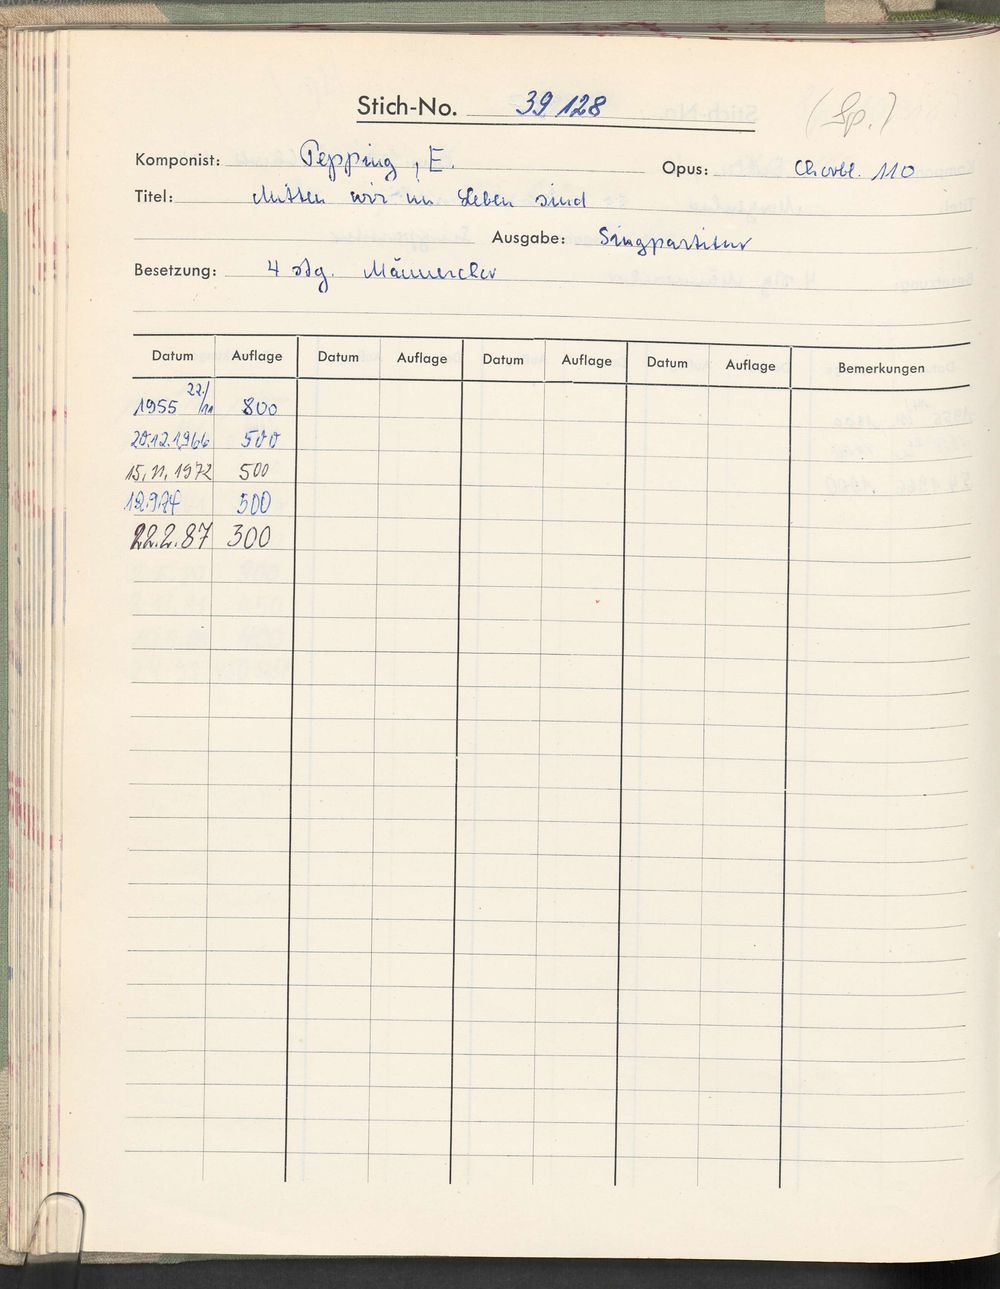 Stich-No. 39 128 (Sp.)
Komponist: Pepping, E. Opus: Chorbl. 110
Titel: Mitten wir im Leben sind
Ausgabe: Singpartitur
Besetzung: 4 stg. Männerchor
Datum Auflage Datum Auflage Datum Auflage Datum Auflage Bemerkungen
1955 22./11 800
20.12.1966 500
15.11.1972 500
12.9.74 500
22.2.87 300